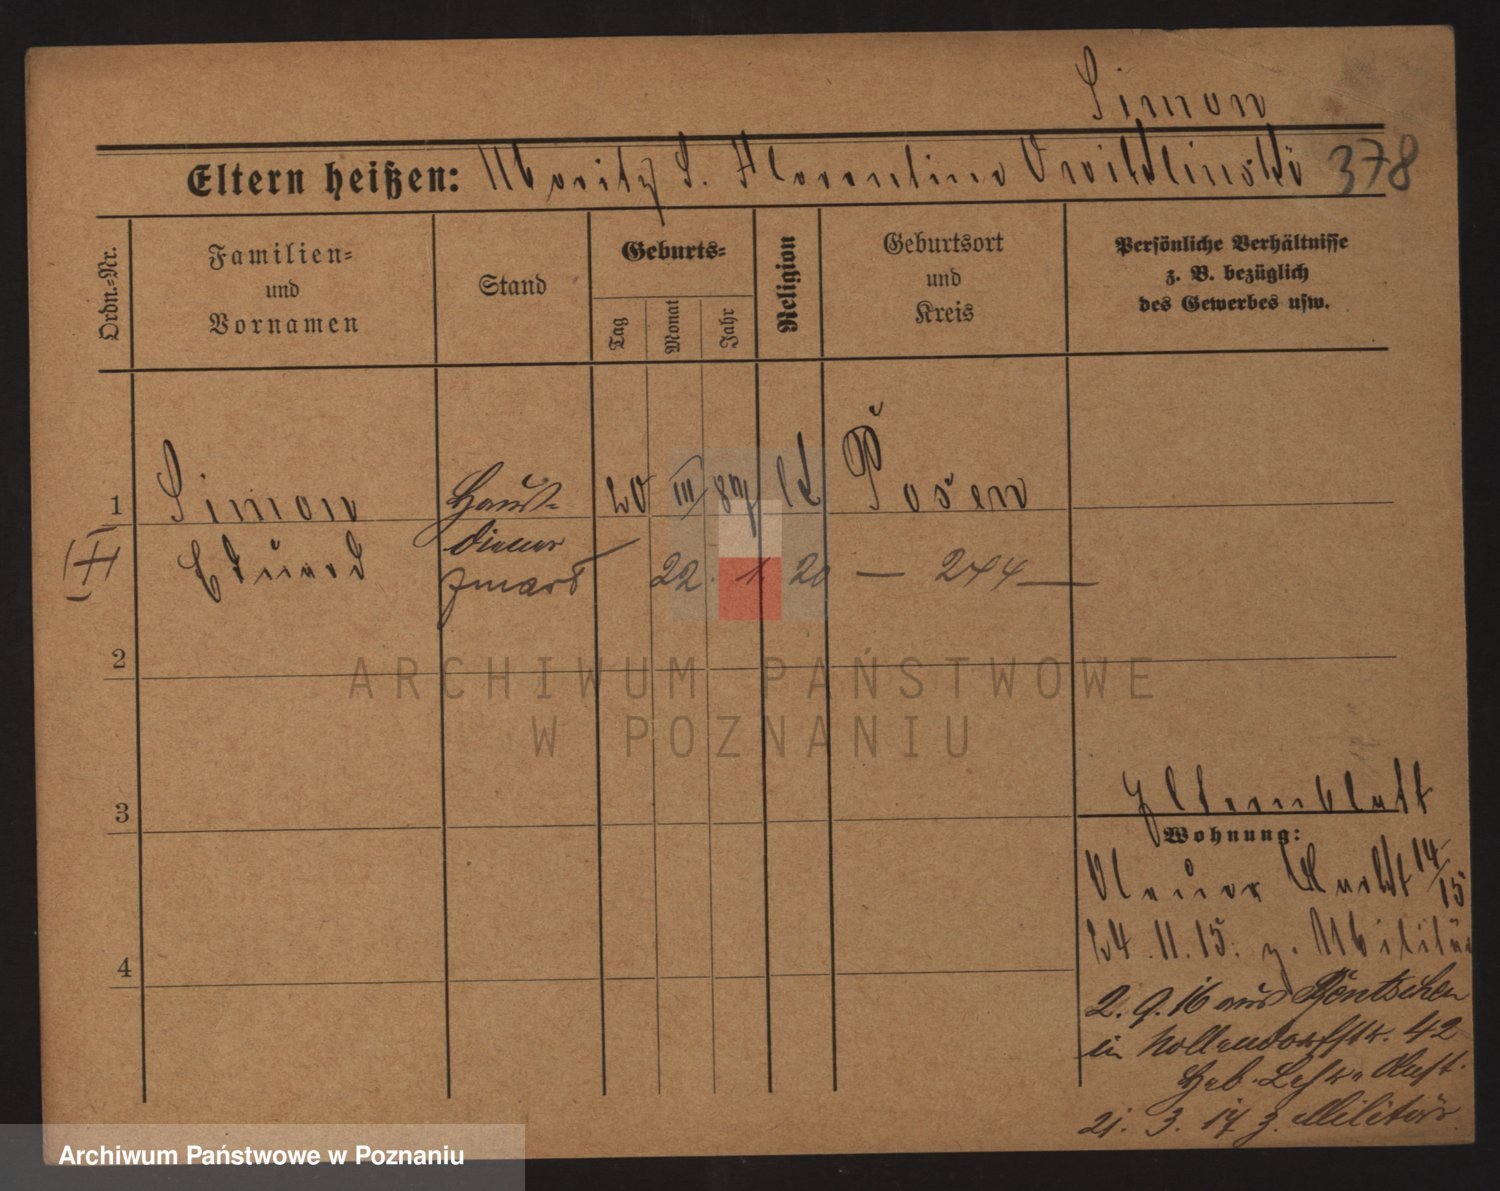 Simon
Eltern heißen: Moritz S. Florentine 378
Ordn.-Nr.
Familien-
und
Vornamen
Stand
Geburts-
Tag
Monat
Jahr
Religion
Geburtsort
und
Kreis
Persönliche Verhältnisse
z. B. bezüglich
des Gewerbes usw.
1 Simon Haus- 20 III 87 Posen
Eduard diener
22. 1. 20 — 244 —
2
ARCHIWUM PAŃSTWOWE
W POZNANIU
3
Elternblatt
Wohnung:
Neuer Markt 14/15
24.11.15. z. Militär
4
2. 9. 16 aus Bentschen
in Nollendorfstr. 42
21. 3. 17 z. Militär
Archiwum Państwowe w Poznaniu